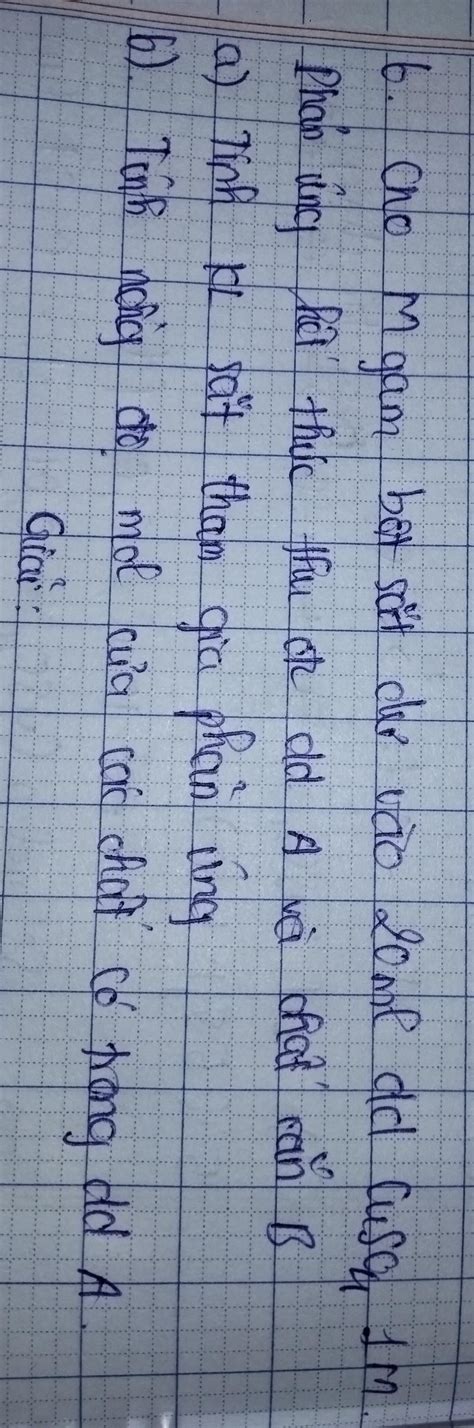 6. Cho m gam bột sắt dư vào 20ml dd CuSO4 1M.
Phản ứng kết thúc thu đc dd A và chất rắn B
a) Tính kl sắt tham gia phản ứng
b). Tính nồng độ mol của các chất có trong dd A.
Giải: